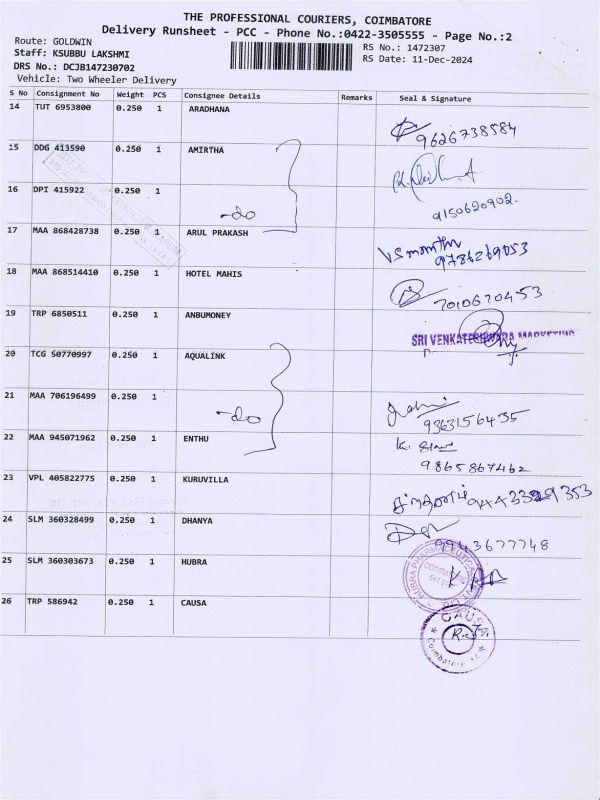 THE PROFESSIONAL COURIERS, COIMBATORE
Delivery Runsheet - PCC - Phone No.:0422-3505555 - Page No.:2
Route: GOLDWIN
RS No.: 1472307
Staff: KSUBBU LAKSHMI
RS Date: 11-Dec-2024
DRS No.: DCJB147230702
Vehicle: Two Wheeler Delivery
S No Consignment No Weight PCS Consignee Details Remarks Seal & Signature
14 TUT 6953800 0.250 1 ARADHANA
9626738584
15 DDG 413590 0.250 1 AMIRTHA
16 DPI 415922 0.250 1
-do
9150620902.
17 MAA 868428738 0.250 1 ARUL PRAKASH
9786269053
18 MAA 868514410 0.250 1 HOTEL MAHIS
7010670453
19 TRP 6850511 0.250 1 ANBUMONEY
SRI VENKATESHWARA MARKETING
20 TCG 50770997 0.250 1 AQUALINK
21 MAA 706196499 0.250 1
-do
9363156435
22 MAA 945071962 0.250 1 ENTHU
K.
9865867462
23 VPL 405822775 0.250 1 KURUVILLA
24 SLM 360328499 0.250 1 DHANYA
9943677748
25 SLM 360303673 0.250 1 HUBRA
HUBRA PHARMACEUTICALS
26 TRP 586942 0.250 1 CAUSA
CAUSA
Coimbatore